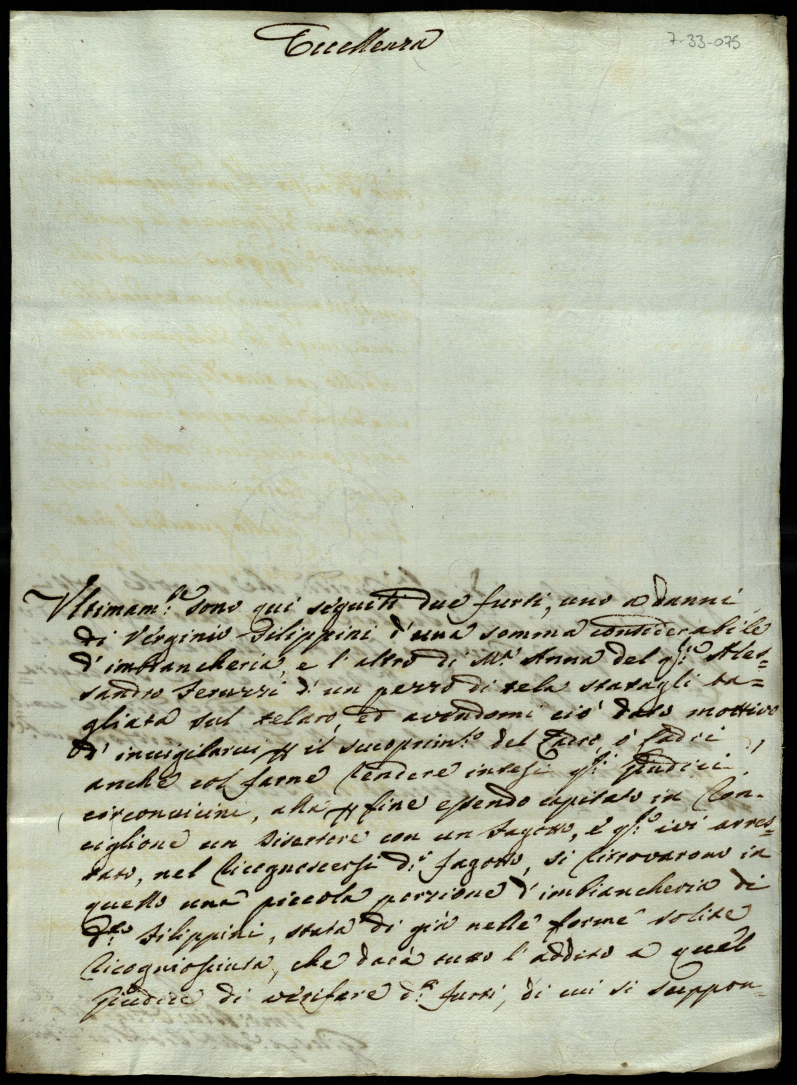 7-33-075
Eccellenza
Ultimam.te sono qui seguiti due furti, uno a danni
di Virginio Filippini d'una somma considerabile
d'imbiancheria, e l'altro di M.a Anna del q.m Ales-
sandro Feruzzi d'un pezzo di tela statagli ta-
gliata sul telaro, ed avendomi ciò dato mottivo
d'invigilare il scoprim.to del Ladro, ò Ladri
anche col farne rendere intesi q.ti Giudici
circonvicini, alla fine essendo capitato in Ron-
ciglione un Disertore con un fagotto, e q.i ivi arres-
tato, nel ricognoscersi d.o fagotto, si ritrovarono in
quello una piccola porzione d'imbiancheria di
d.o Filippini, stata di già nelle forme solite
ricogniosciuta, che darà tutto l'addito a quel
Giudice di verifare d.i furti, di cui si suppon-